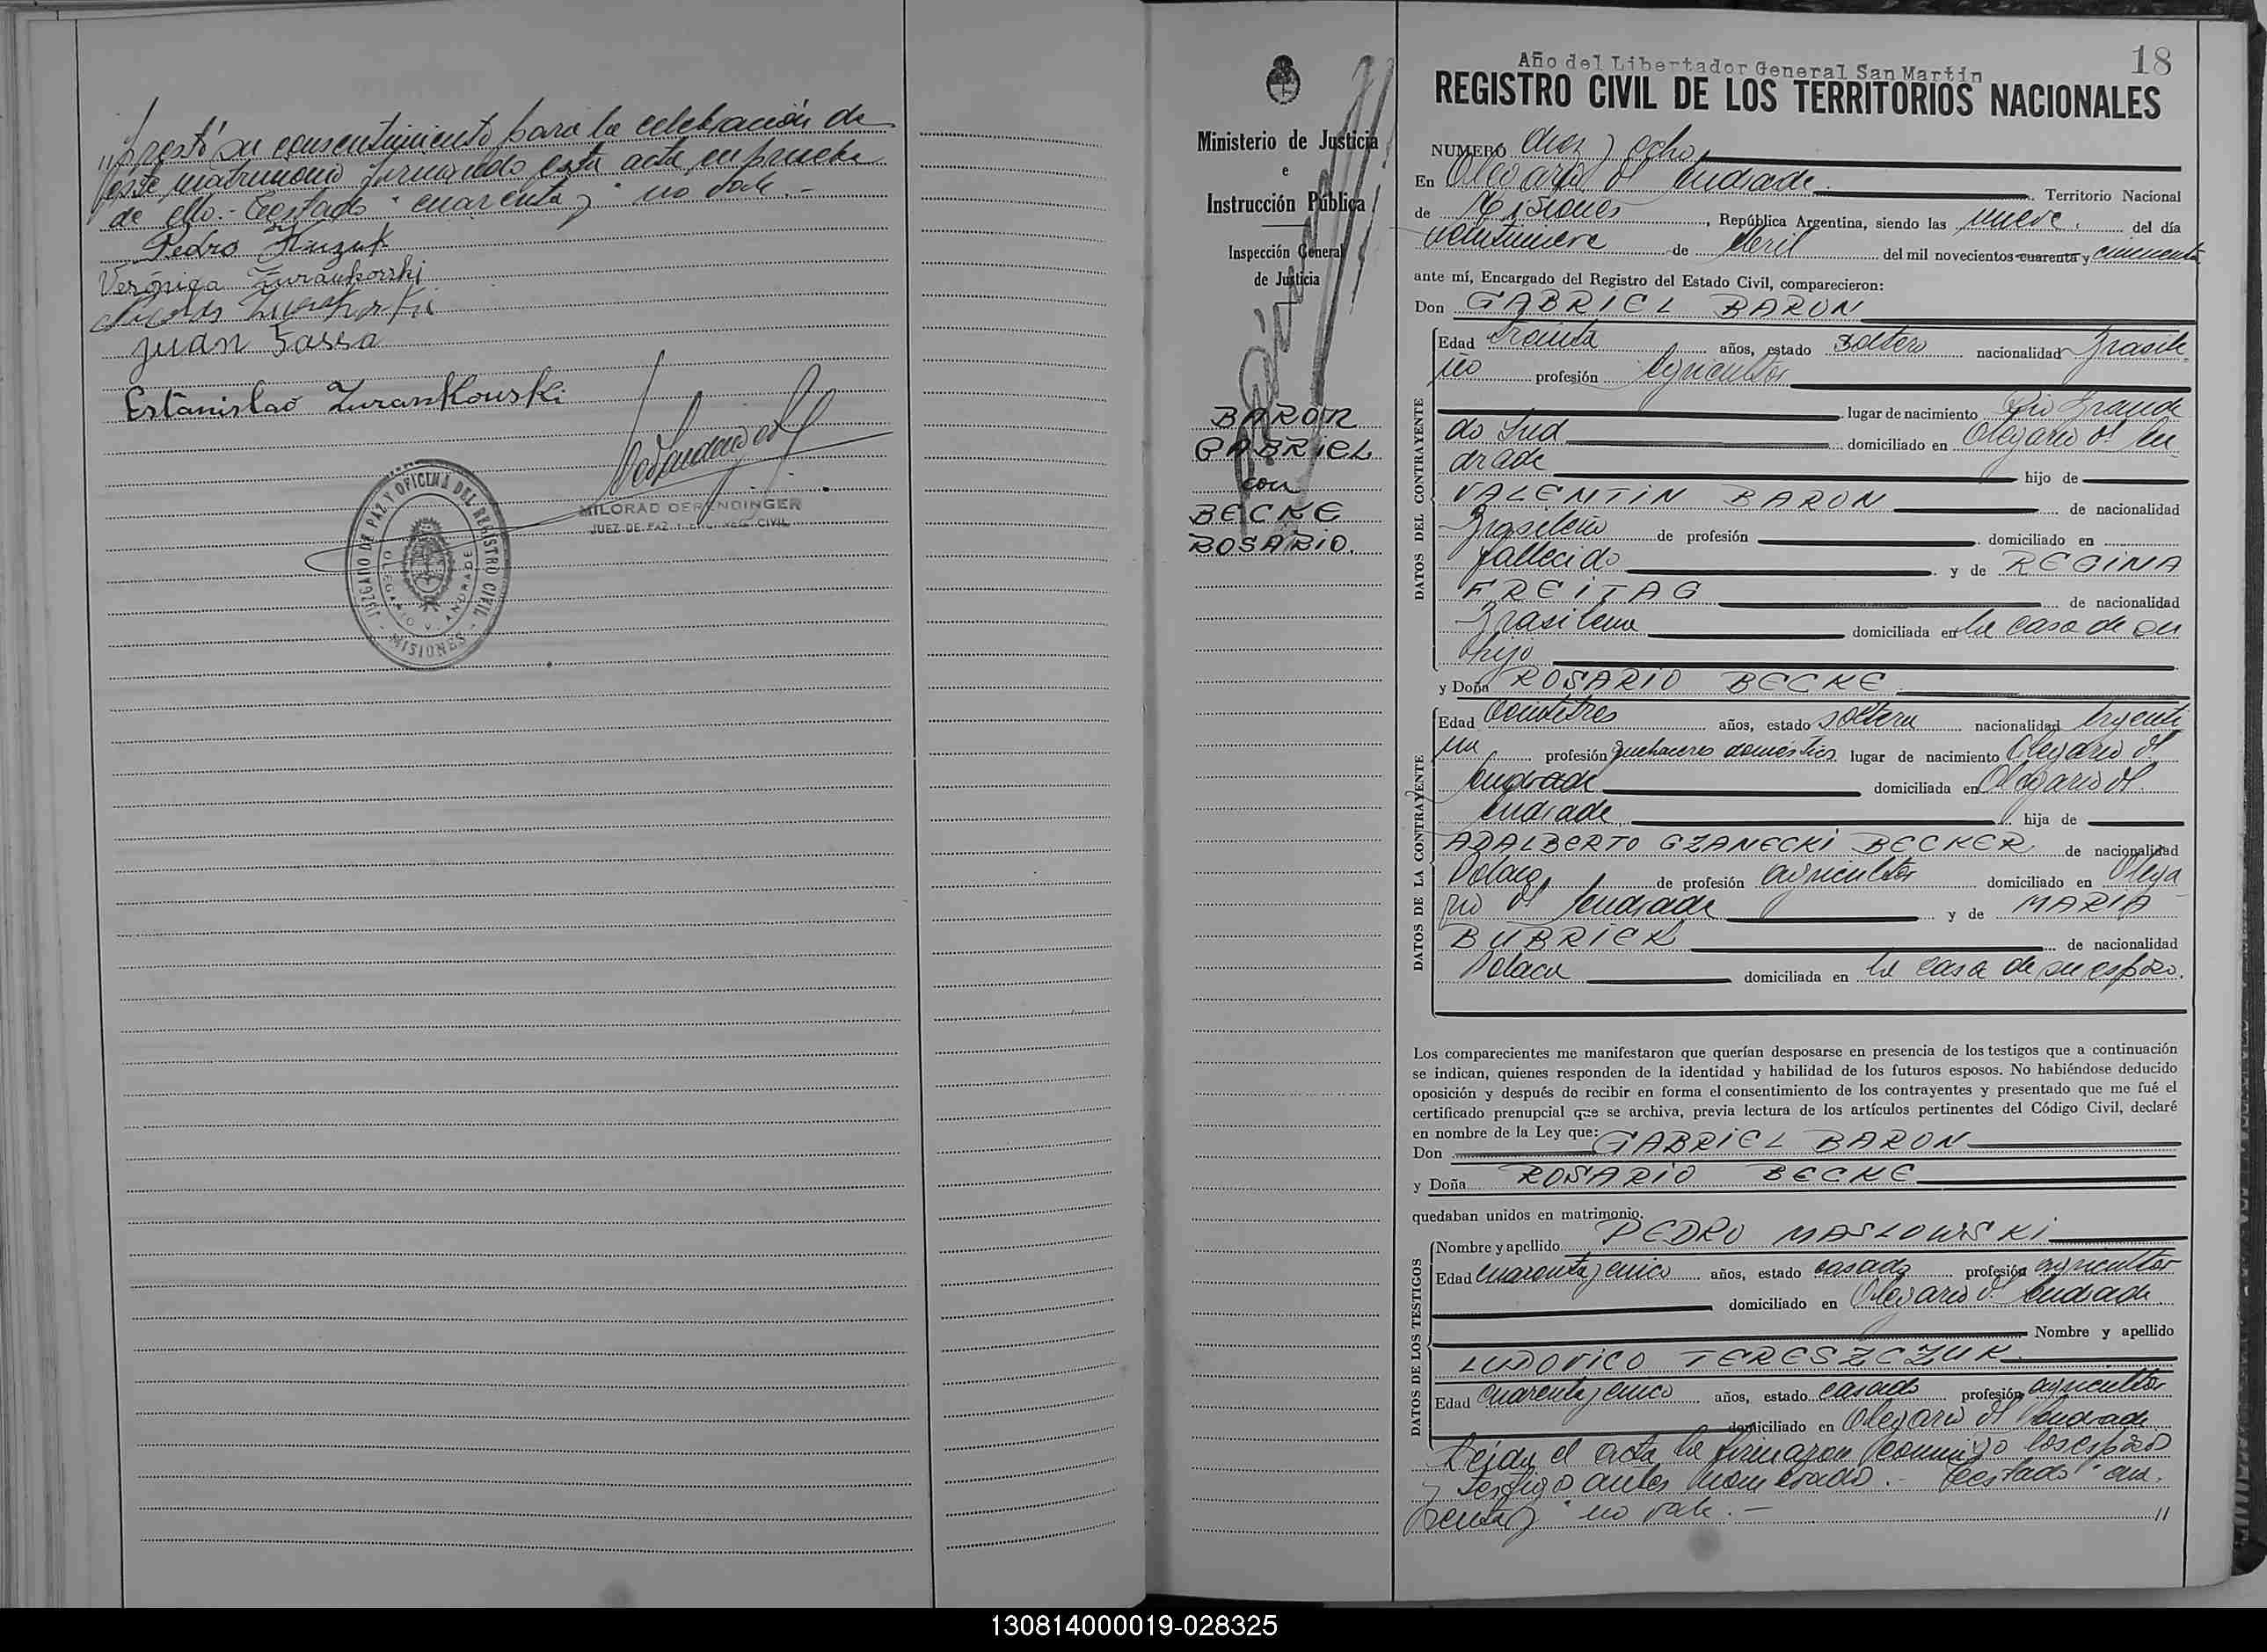 // prestó su consentimiento para la celebración de
este matrimonio firmando esta acta en prueba
de ello.- Testado "cuarenta y" no vale.-
Pedro Kuzuk
Verónica Zurankovski
Juan Sassa
Estanislao Zurankouski
MILORAD DERENDINGER
JUEZ DE PAZ Y ENC. REG. CIVIL
JUZGADO DE PAZ Y OFICINA DEL REGISTRO CIVIL
OLEGARIO V. ANDRADE
- MISIONES -
Ministerio de Justicia
e
Instrucción Pública
Inspección General
de Justicia
BARON
GABRIEL
con
BECKE
ROSARIO.
18
Año del Libertador General San Martín
REGISTRO CIVIL DE LOS TERRITORIOS NACIONALES
NUMERO diez y ocho
En Olegario V Andrade . Territorio Nacional
de Misiones , República Argentina, siendo las nueve. del día
veintinueve de Abril del mil novecientos cuarenta y cincuenta
ante mí, Encargado del Registro del Estado Civil, comparecieron:
Don GABRIEL BARON
DATOS DEL CONTRAYENTE
Edad treinta años, estado soltero nacionalidad Brasile
ño profesión Agricultor
lugar de nacimiento Rio Grande
do Sud domiciliado en Olegario V An
drade hijo de
VALENTIN BARON de nacionalidad
Brasileño de profesión domiciliado en
fallecido y de REGINA
FREITAG de nacionalidad
Brasileña domiciliada en la casa de su
hijo
y Doña ROSARIO BECKE
DATOS DE LA CONTRAYENTE
Edad veintitres años, estado soltera nacionalidad Argenti
na profesión quehaceres domésticos lugar de nacimiento Olegario V
Andrade domiciliada en Olegario V.
Andrade hija de
ADALBERTO GZANECKI BECKER de nacionalidad
Polaco de profesión agricultor domiciliado en Olega
rio V Andrade y de MARIA
BUBRICK de nacionalidad
Polaca domiciliada en la casa de su esposo.
Los comparecientes me manifestaron que querían desposarse en presencia de los testigos que a continuación
se indican, quienes responden de la identidad y habilidad de los futuros esposos. No habiéndose deducido
oposición y después de recibir en forma el consentimiento de los contrayentes y presentado que me fué el
certificado prenupcial que se archiva, previa lectura de los artículos pertinentes del Código Civil, declaré
en nombre de la Ley que:
Don GABRIEL BARON
y Doña ROSARIO BECKE
quedaban unidos en matrimonio.
DATOS DE LOS TESTIGOS
Nombre y apellido PEDRO MASLOWSKI
Edad cuarenta y cinco años, estado casado profesión agricultor
domiciliado en Olegario V Andrade
Nombre y apellido
LUDOVICO TERESZCZUK
Edad cuarenta y cinco años, estado casado profesión agricultor
domiciliado en Olegario V Andrade
Leída el acta la firmaron conmigo los esposos
y testigos antes nombrados.- Testado "cua
renta y" no vale.-
//
130814000019-028325